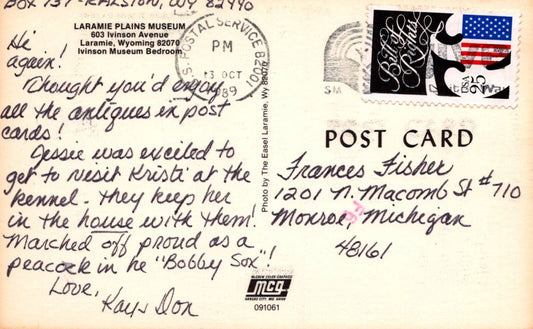 BOX 137 - RALSTON, WY 82440
LARAMIE PLAINS MUSEUM
603 Ivinson Avenue
Laramie, Wyoming 82070
Ivinson Museum Bedroom
Hi
again!
Thought you'd enjoy
all the antiques in post
cards!
Jessie was excited to
get to visit Kristi at the
kennel - they keep her
in the house with them.
Marched off proud as a
peacock in he "Bobby Sox"!
Love,
Kay & Don
U.S. POSTAL SERVICE 82001
PM
13 OCT
1989
Photo by The Easel Laramie, Wy 82070
Bill of Rights
USA
25
POST CARD
Frances Fisher
1201 N. Macomb St #710
Monroe, Michigan
48161
McGREW COLOR GRAPHICS
mcg
KANSAS CITY, MO 64108
091061